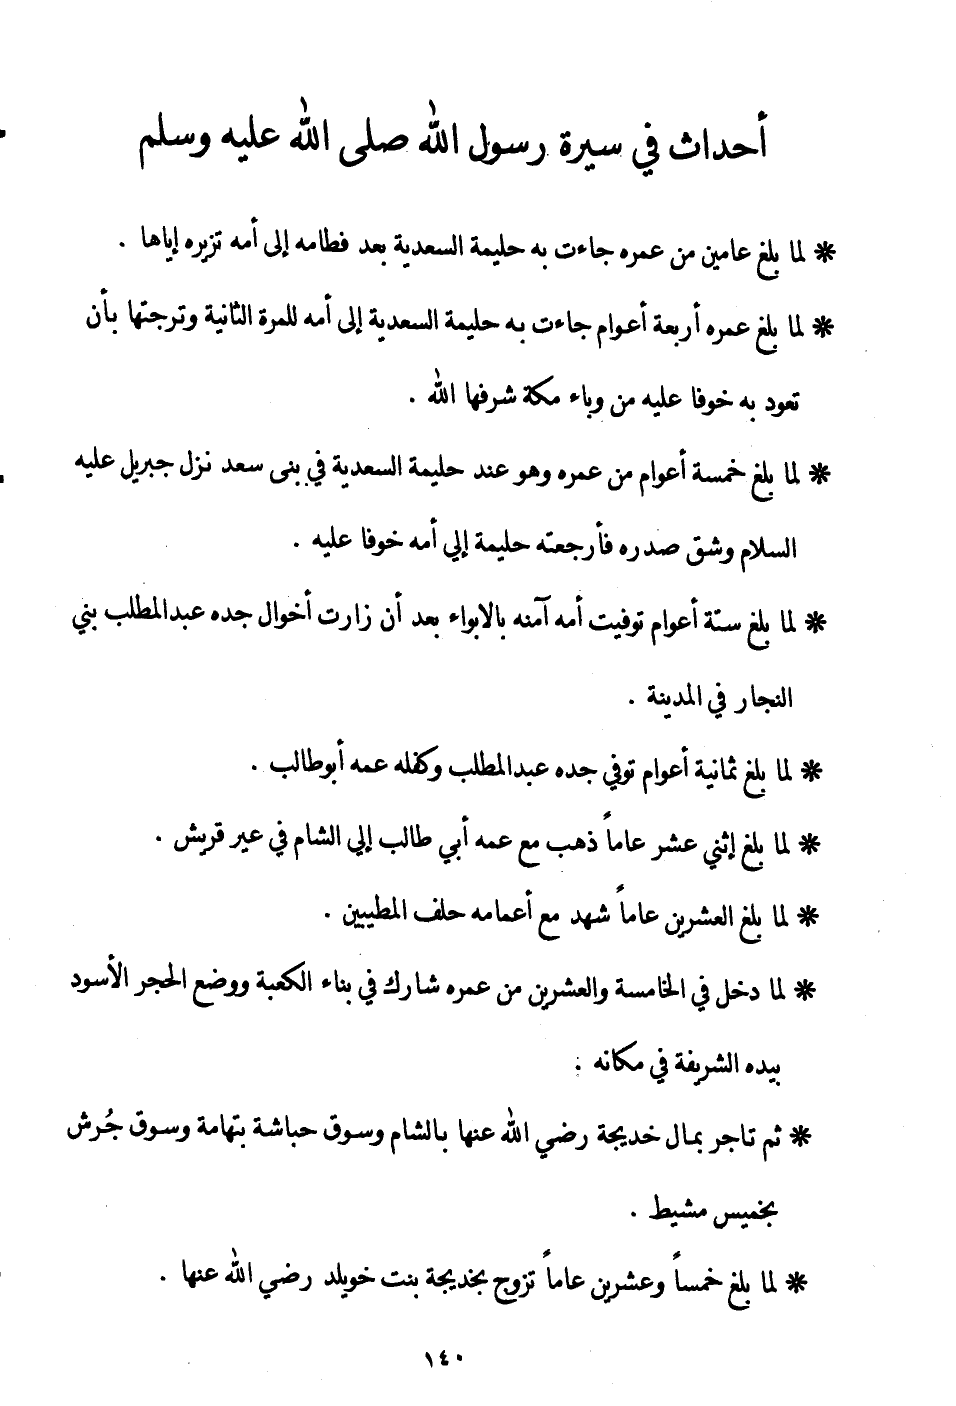 أحداث في سيرة رسول الله صلى الله عليه وسلم
* لما بلغ عامين من عمره جاءت به حليمة السعدية بعد فطامه إلى أمه تزيره إياها .
* لما بلغ عمره أربعة أعوام جاءت به حليمة السعدية إلى أمه للمرة الثانية وترجتها بأن
تعود به خوفا عليه من وباء مكة شرفها الله .
* لما بلغ خمسة أعوام من عمره وهو عند حليمة السعدية في بنى سعد نزل جبريل عليه
السلام وشق صدره فأرجعته حليمة إلي أمه خوفا عليه .
* لما بلغ ستة أعوام توفيت أمه آمنه بالابواء بعد أن زارت أخوال جده عبدالمطلب بني
النجار في المدينة .
* لما بلغ ثمانية أعوام توفي جده عبدالمطلب وكفله عمه أبوطالب .
* لما بلغ إثني عشر عاماً ذهب مع عمه أبي طالب إلي الشام في عير قريش .
* لما بلغ العشرين عاماً شهد مع أعمامه حلف المطيبين .
* لما دخل في الخامسة والعشرين من عمره شارك في بناء الكعبة ووضع الحجر الأسود
بيده الشريفة في مكانه .
* ثم تاجر بمال خديجة رضي الله عنها بالشام وسوق حباشة بتهامة وسوق جُرش
بخميس مشيط .
* لما بلغ خمساً وعشرين عاماً تزوج بخديجة بنت خويلد رضي الله عنها .
١٤٠